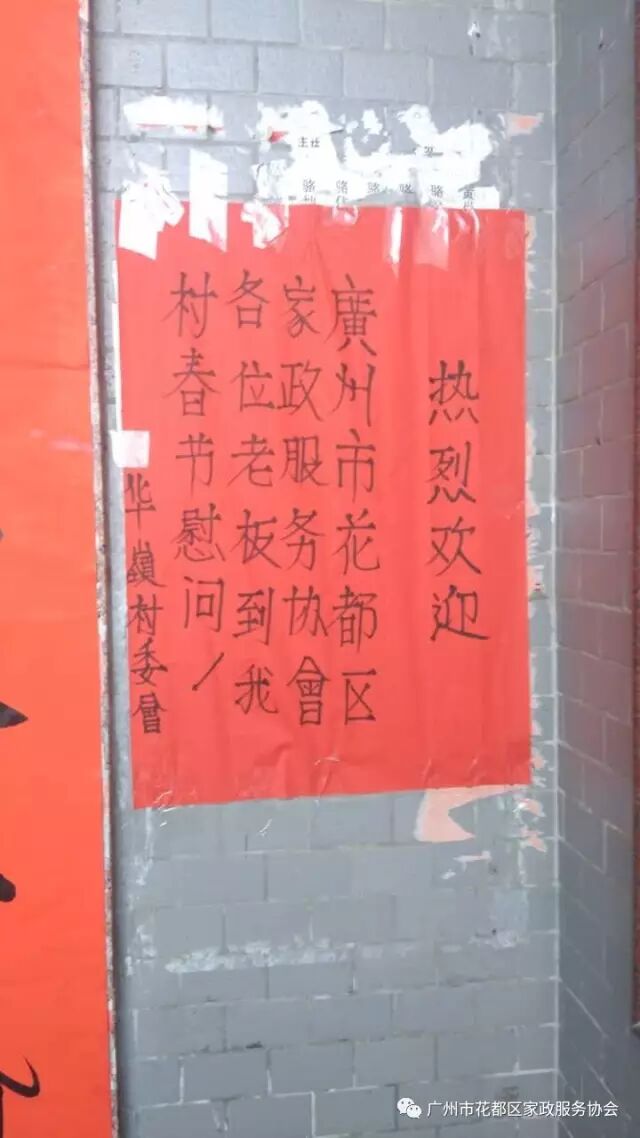 热烈欢迎
廣州市花都区
家政服务协會
各位老板到我
村春节慰问！
华嶺村委會
主任
骆 骆 骆 骆 骆 黄
广州市花都区家政服务协会